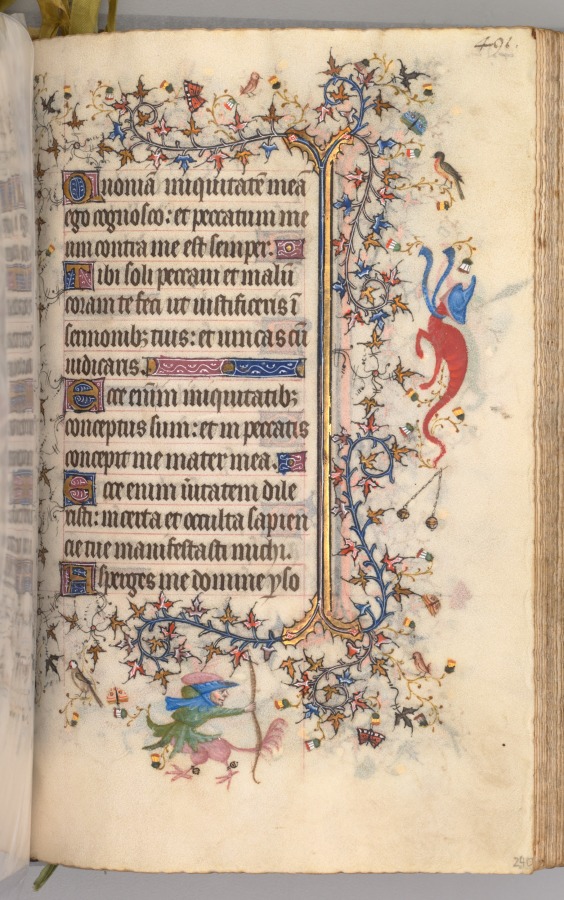 496.
Quoniā iniquitatē mea
ego cognosco: et peccatum me
um contra me est semper.
Tibi soli peccaui et malū
coram te feci ut iustificeris ī
sermonibꝫ tuis: et uincas cū
iudicaris.
Ecce enim iniquitatibꝫ
conceptus sum: et in peccatis
concepit me mater mea.
Ecce enim ūitatem dile
xisti: incerta et occulta sapien
cie tue manifestasti michi.
Asperges me domine yso